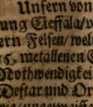 Unsern von
ung Gefläla/
ern Felsen/ wel
5. metallenen S
Nothwendigkei
Destar und Or